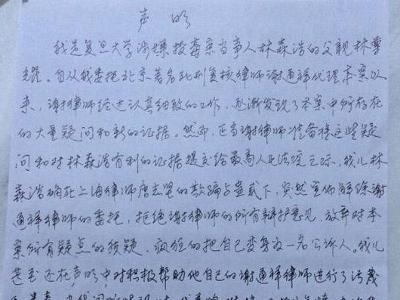 声 明
我是复旦大学涉嫌投毒案当事人林森浩的父亲林尊
耀。自从我委托北京著名死刑复核律师谢通祥代理本案以
来，谢律师经过认真细致的工作，逐渐发现了本案中所存在
的大量疑问和新的证据。然而，正当谢律师准备将这些疑
问和对林森浩有利的证据提交给最高人民法院之际，我儿林
森浩确在上海律师唐志坚的欺骗与蛊惑下，突然宣布解除谢
通祥律师的委托，拒绝谢律师的所有辩护意见，放弃对本
案所有疑点的质疑，疯狂的把自己变身为一名公诉人。我儿
甚至还在声明中对积极帮助他自己的谢通祥律师进行了